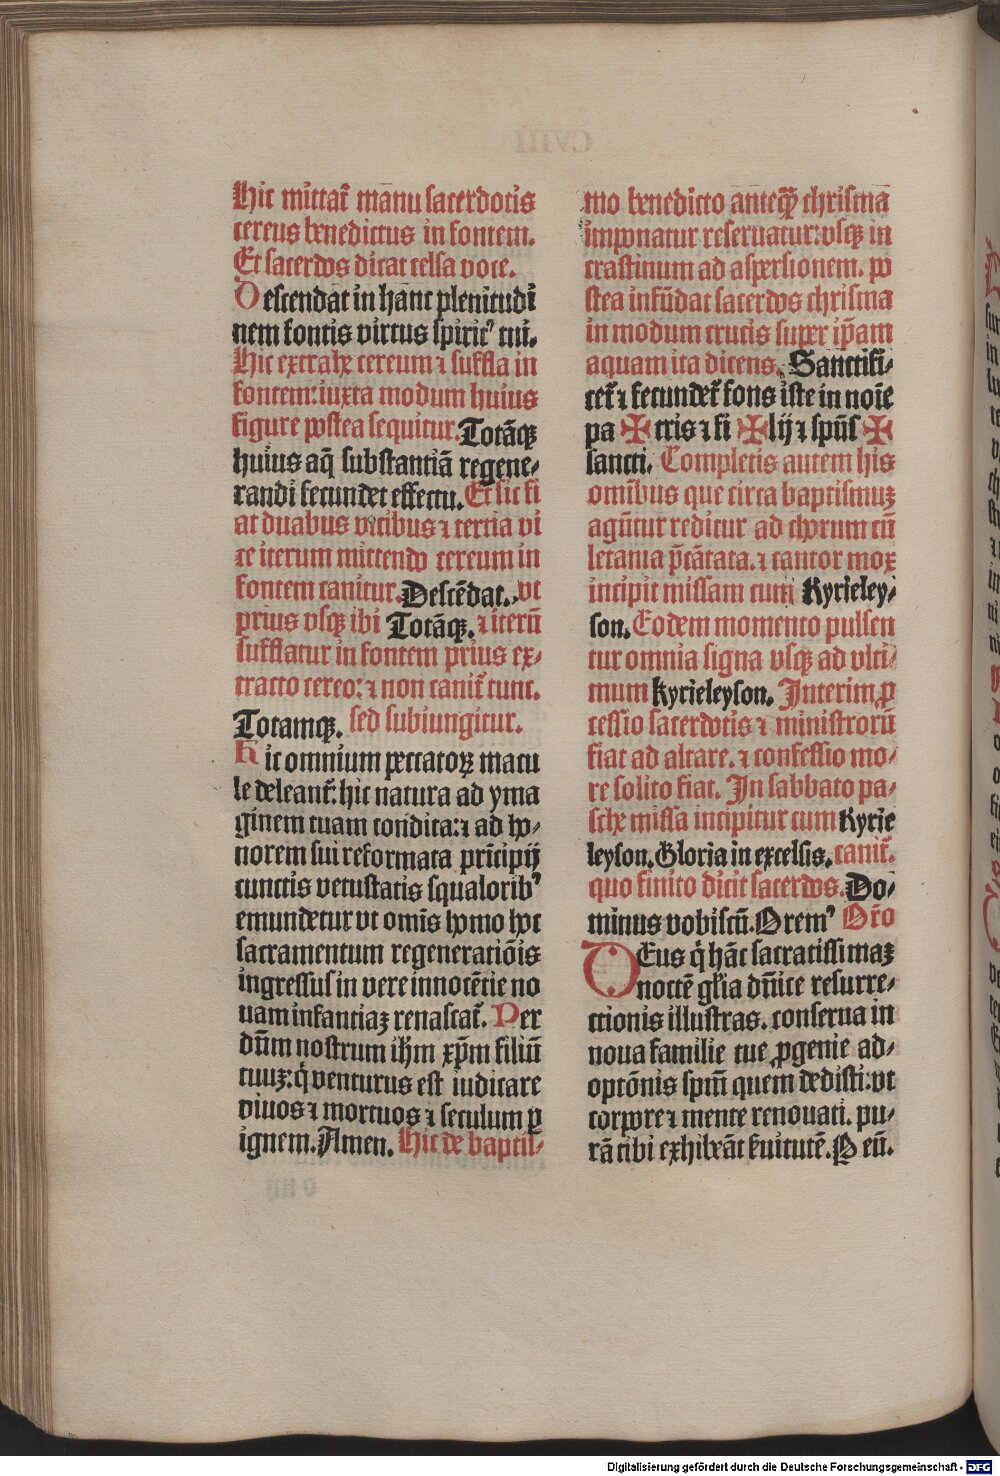 Hic mittat᷑ manu sacerdotis
cereus benedictus in fontem.
Et sacerdos dicat celsa voce.
Descendāt in hanc plenitudi
nem fontis virtus spirit᾽ tui.
Hic extrahe cereum ⁊ suffla in
fontem: iuxta modum huius
figure postea sequitur. Totāqꝫ
huius aq̄ substantiā regene⸗
randi fecundet effectu. Et sic fi
at duabus vicibus ⁊ tertia vi
ce iterum mittendo cereum in
fontem canitur. Descēdat. vt
prius vsqꝫ ibi Totāqꝫ. ⁊ iterū
sufflatur in fontem prius ex⸗
tracto cereo: ⁊ non canit᷑ tunc.
Totamqꝫ. sed subiungitur.
Hic omnium peccatoꝝ macu
le deleant᷑: hic natura ad yma
ginem tuam condita: ⁊ ad ho⸗
norem sui reformata prīcipij
cunctis vetustatis squalorib᾽
emundetur vt omīs homo hoc
sacramentum regeneratiōis
ingressus in vere innocētie no
uam infantiaꝫ renascat᷑. Per
dn̄m nostrum ih̄m xp̄m filiū
tuuꝫ: q̇ venturus est iudicare
viuos ⁊ mortuos ⁊ seculum ꝑ
ignem. Amen. Hic de baptis⸗
mo benedicto anteqꝫ̄ chrisma
imponatur reseruatur: vsqꝫ in
crastinum ad aspersionem. po
stea infūdat sacerdos chrisma
in modum crucis super ip̄am
aquam ita dicens. Sanctifi⸗
cet᷑ ⁊ fecundet᷑ fons iste in noīe
pa ✠ tris ⁊ fi ✠ lij ⁊ spūs ✠
sancti. Completis autem his
omībus que circa baptismuꝫ
agūtur reditur ad chorum cū
letania p̄cātata. ⁊ cantor mox
incipit missam cum Kyrieley⸗
son. Eodem momento pulsen
tur omnia signa vsqꝫ ad vlti⸗
mum kyrieleyson. Interim ꝓ
cessio sacerdotis ⁊ ministrorū
fiat ad altare. ⁊ confessio mo⸗
re solito fiat. In sabbato pa⸗
sche missa incipitur cum Kyrie
leyson. Gloria in excelsis. canit᷑.
quo finito dicit sacerdos. Do⸗
minus vobiscū. Orem᾽ Or̄o
DEus q̇ hāc sacratissimaꝫ
noctē gl̄ia dn̄ice resurre⸗
ctionis illustras. conserua in
noua familie tue ꝓgenie ad⸗
optōnis spm̄ quem dedisti: vt
corpore ⁊ mente renouati. pu⸗
rā tibi exhibeāt ẜuitutē. P eū.
Digitalisierung gefördert durch die Deutsche Forschungsgemeinschaft - DFG